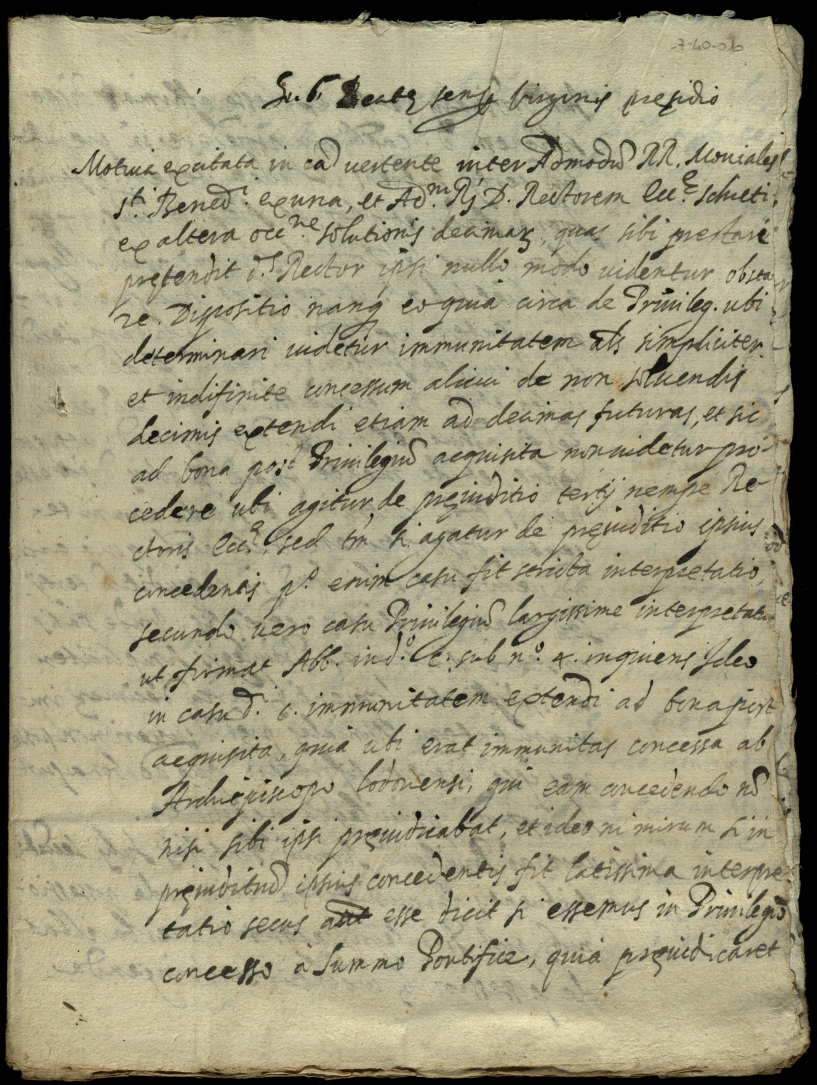 -7-40-010
Sub Beatę semp Virginis pręsidio
Motiva excitata in cā vertente inter Admodū RR. Moniales
S.ti Bened.i ex una, et Ad.m R. D. Rectorem Ecc.ę
ex altera occ.ne solutionis decimarū, quas sibi prestare
pretendit d.s Rector ipsi nullo modo videntur obsta
re. Dispositio nanq eo quia circa de Privileg. ubi
determinari videtur immunitatem abs simpliciter
et indifinite concessum alicui de non solvendis
decimis extendi etiam ad decimas futuras, et sic
ad bona post Privilegiū acquisita non videtur pro-
cedere ubi agitur de pręiuditio tertij nempe Re-
ctoris Ecc.ę, sed tm si agatur de pręiuditio ipsius
concedentis p.o enim casu fit stricta interpretatio,
secundo vero casu Privilegiū largissime interpretat
ut firmat Abb. in d.o c. sub n.o 4. inquiens Ideo
in casu d. c. immunitatem extendi ad bona post
acquisita, quia ubi erat immunitas concessa ab
Archiepiscopo qui eam concedendo nō
nisi sibi ipsi pręiudicabat, et ideo ni mirum si in
pręiuditiū ipsius concedentis fit latissima interpre
tatio secus aut esse dicit si essemus in Privilegio
concesso à Summo Pontifice, quia pręiudicaret